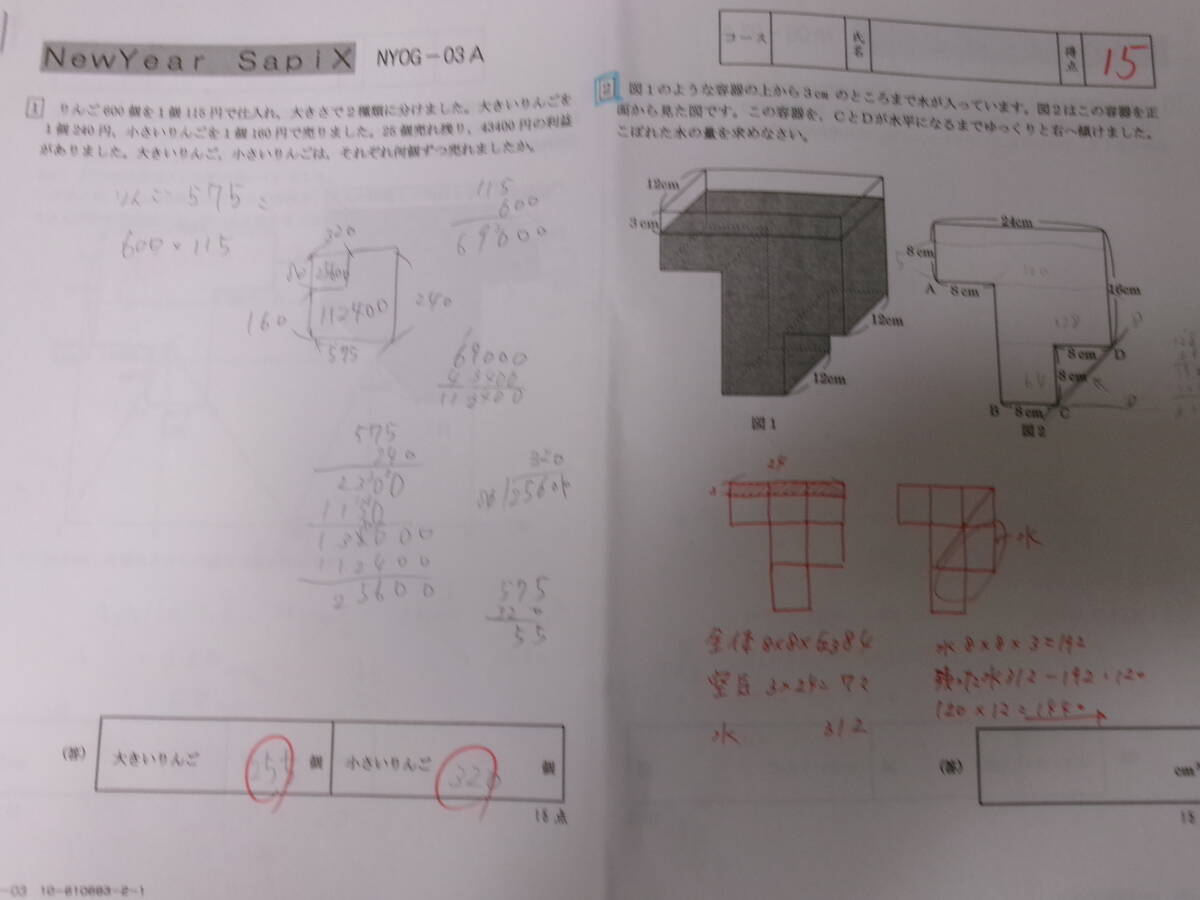 NewYear SapiX NYOG-03A
1 りんご600個を1個115円で仕入れ、大きさで2種類に分けました。大きいりんごを
1個240円、小さいりんごを1個160円で売りました。25個売れ残り、43400円の利益
がありました。大きいりんご、小さいりんごは、それぞれ何個ずつ売れましたか。
りんご 575こ
600×115
115
600
69000
320
25600
112400
160
240
575
69000
43400
112400
575
240
2300
1150
138000
112400
25600
320
575
320
(答)
大きいりんご 255 個
小さいりんご 320 個
18点
コース
氏名
得点
15
2 図1のような容器の上から3cmのところまで水が入っています。図2はこの容器を正
面から見た図です。この容器を、CとDが水平になるまでゆっくりと右へ傾けました。
こぼれた水の量を求めなさい。
12cm
3cm
12cm
12cm
図1
24cm
8cm
A 8cm
16cm
128
8cm D
64
8cm
B 8cm C
図2
水
全体 8×8×6=384
空気 3×24=72
水 312
水 8×8×3=192
残った水 312-192=120
120×12=1440
(答)
cm³
18
-03 10-810693-2-1